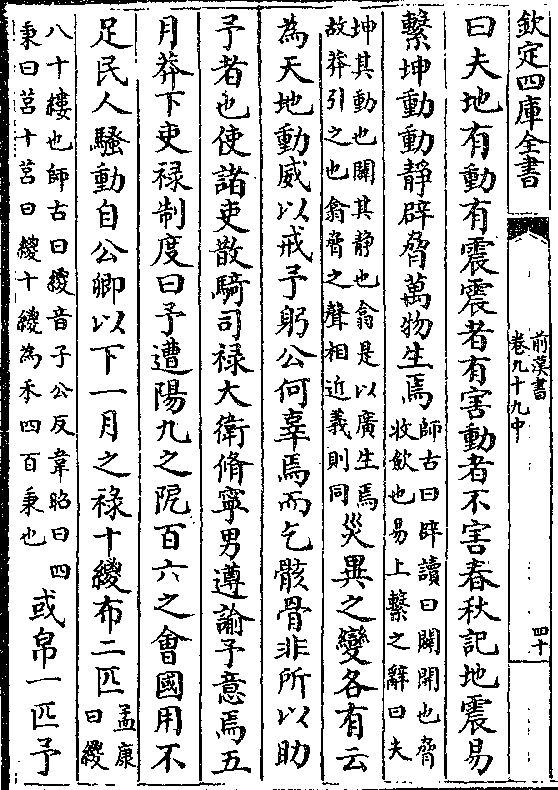 欽定四庫全書
前漢書
卷九十九中
四十
曰夫地有動有震震者有害動者不害春秋記地震易
繫坤動動靜辟脅萬物生焉師古曰辟讀曰闢闢開也脅
收斂也易上繫之辭曰夫
坤其動也闢其靜也翕是以廣生焉
故莽引之也翕脅之聲相近義則同災異之變各有云
為天地動威以戒予躬公何辜焉而乞骸骨非所以助
予者也使諸吏散騎司禄大衛脩寧男遵諭予意焉五
月莽下吏禄制度曰予遭陽九之阨百六之會國用不
足民人騷動自公卿以下一月之禄十緵布二匹孟康
曰緵
八十縷也師古曰緵音子公反韋昭曰四
秉曰筥十筥曰緵十緵為禾四百秉也或帛一匹予